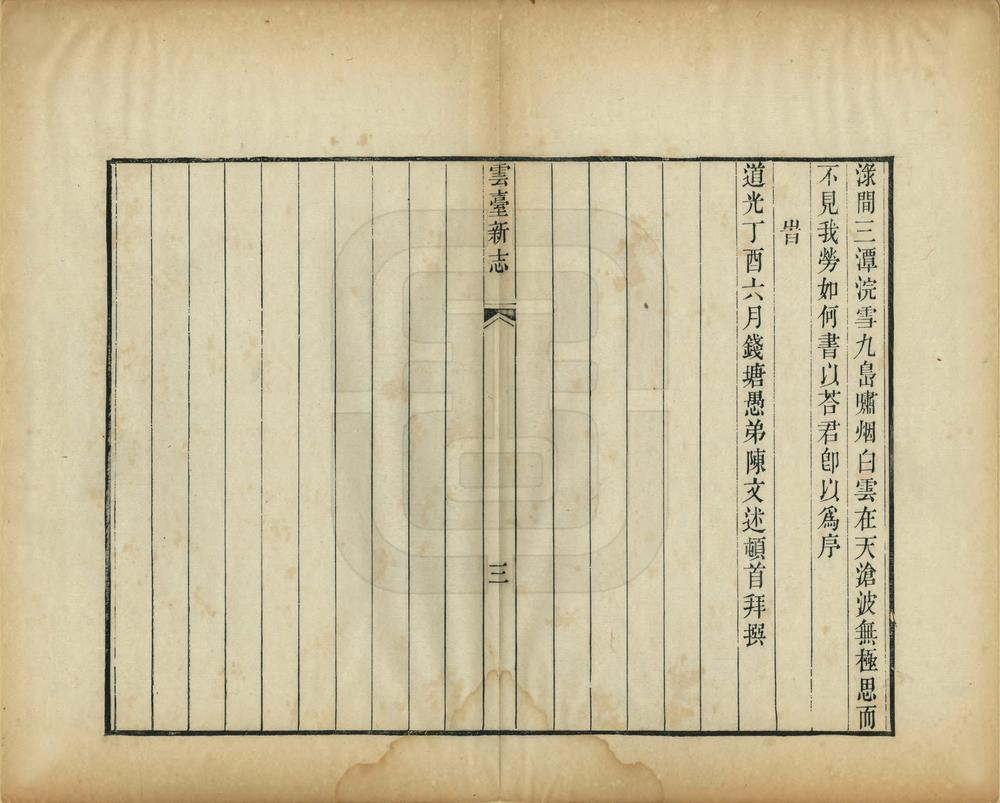 淥間三潭浣雪九島嘯烟白雲在天滄波無極思而
不見我勞如何書以荅君卽以爲序
旹
道光丁酉六月錢塘愚弟陳文述頓首拜撰
雲臺新志
三